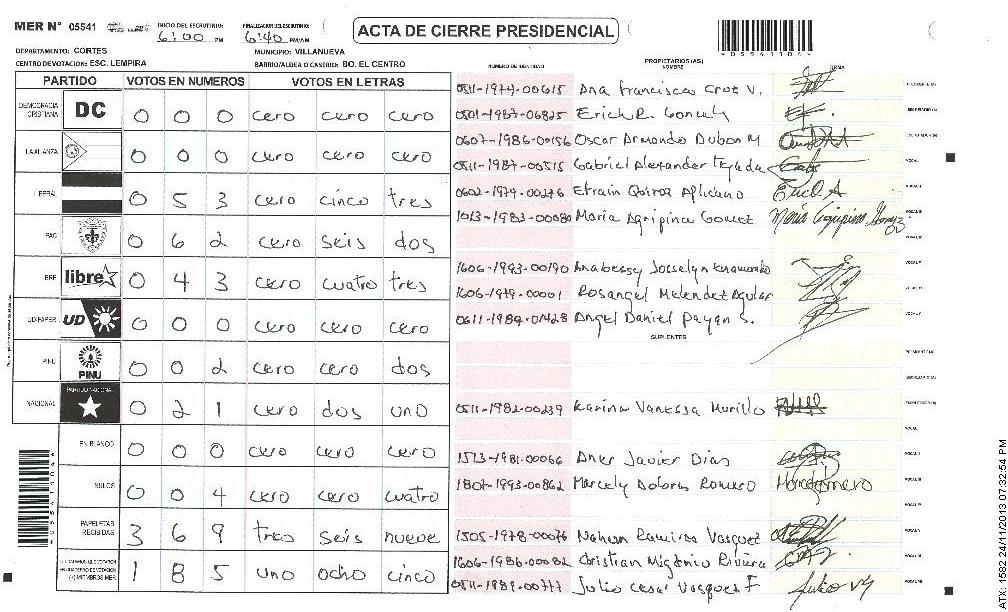 MER N° 05541
INICIO DEL ESCRUTINIO: 6:00 PM
FINALIZACION DEL ESCRUTINIO: 6:40 PM/AM
ACTA DE CIERRE PRESIDENCIAL
DEPARTAMENTO: CORTES
MUNICIPIO: VILLANUEVA
CENTRO DE VOTACION: ESC. LEMPIRA
BARRIO/ALDEA O CASERIO: BO. EL CENTRO
PARTIDO VOTOS EN NUMEROS VOTOS EN LETRAS
DEMOCRACIA CRISTIANA DC 0 0 0 cero cero cero
LA ALIANZA 0 0 0 cero cero cero
LIBERAL 0 5 3 cero cinco tres
PAC 0 6 2 cero seis dos
libre 0 4 3 cero cuatro tres
UD/FAPER UD 0 0 0 cero cero cero
PINU PINU 0 0 2 cero cero dos
NACIONAL PARTIDO NACIONAL 0 2 1 cero dos uno
EN BLANCO 0 0 0 cero cero cero
NULOS 0 0 4 cero cero cuatro
PAPELETAS RECIBIDAS 3 6 9 tres seis nueve
(+) MIEMBROS MER 1 8 5 uno ocho cinco
NUMERO DE IDENTIDAD PROPIETARIOS (AS) NOMBRE FIRMA
0511-1974-00615 Ana Francisca Cruz V.
0501-1987-06825 Erich R.
0607-1986-00156 Oscar Armando Dubon M
0511-1987-00515 Gabriel Alexander Tejada
0602-1979-00276 Efrain Aplicano
1013-1983-00080 Maria Agripina Gomez
1606-1993-00190 Josselyn
1606-1979-00001 Rosangel Melendez Aguilar
0611-1989-01428 Angel Daniel Payan S.
SUPLENTES
0511-1982-00239 Karina Vanessa Murillo
1513-1981-00066 Javier Dias
1807-1993-00862 Marcely Dolores Romero
1505-1978-00076 Nahun Ramirez Vasquez
1606-1986-00082 Cristian Rivera
0511-1989-00777 Julio Cesar Vasquez F
ATX: 1582 24/11/2013 07:32:54 PM